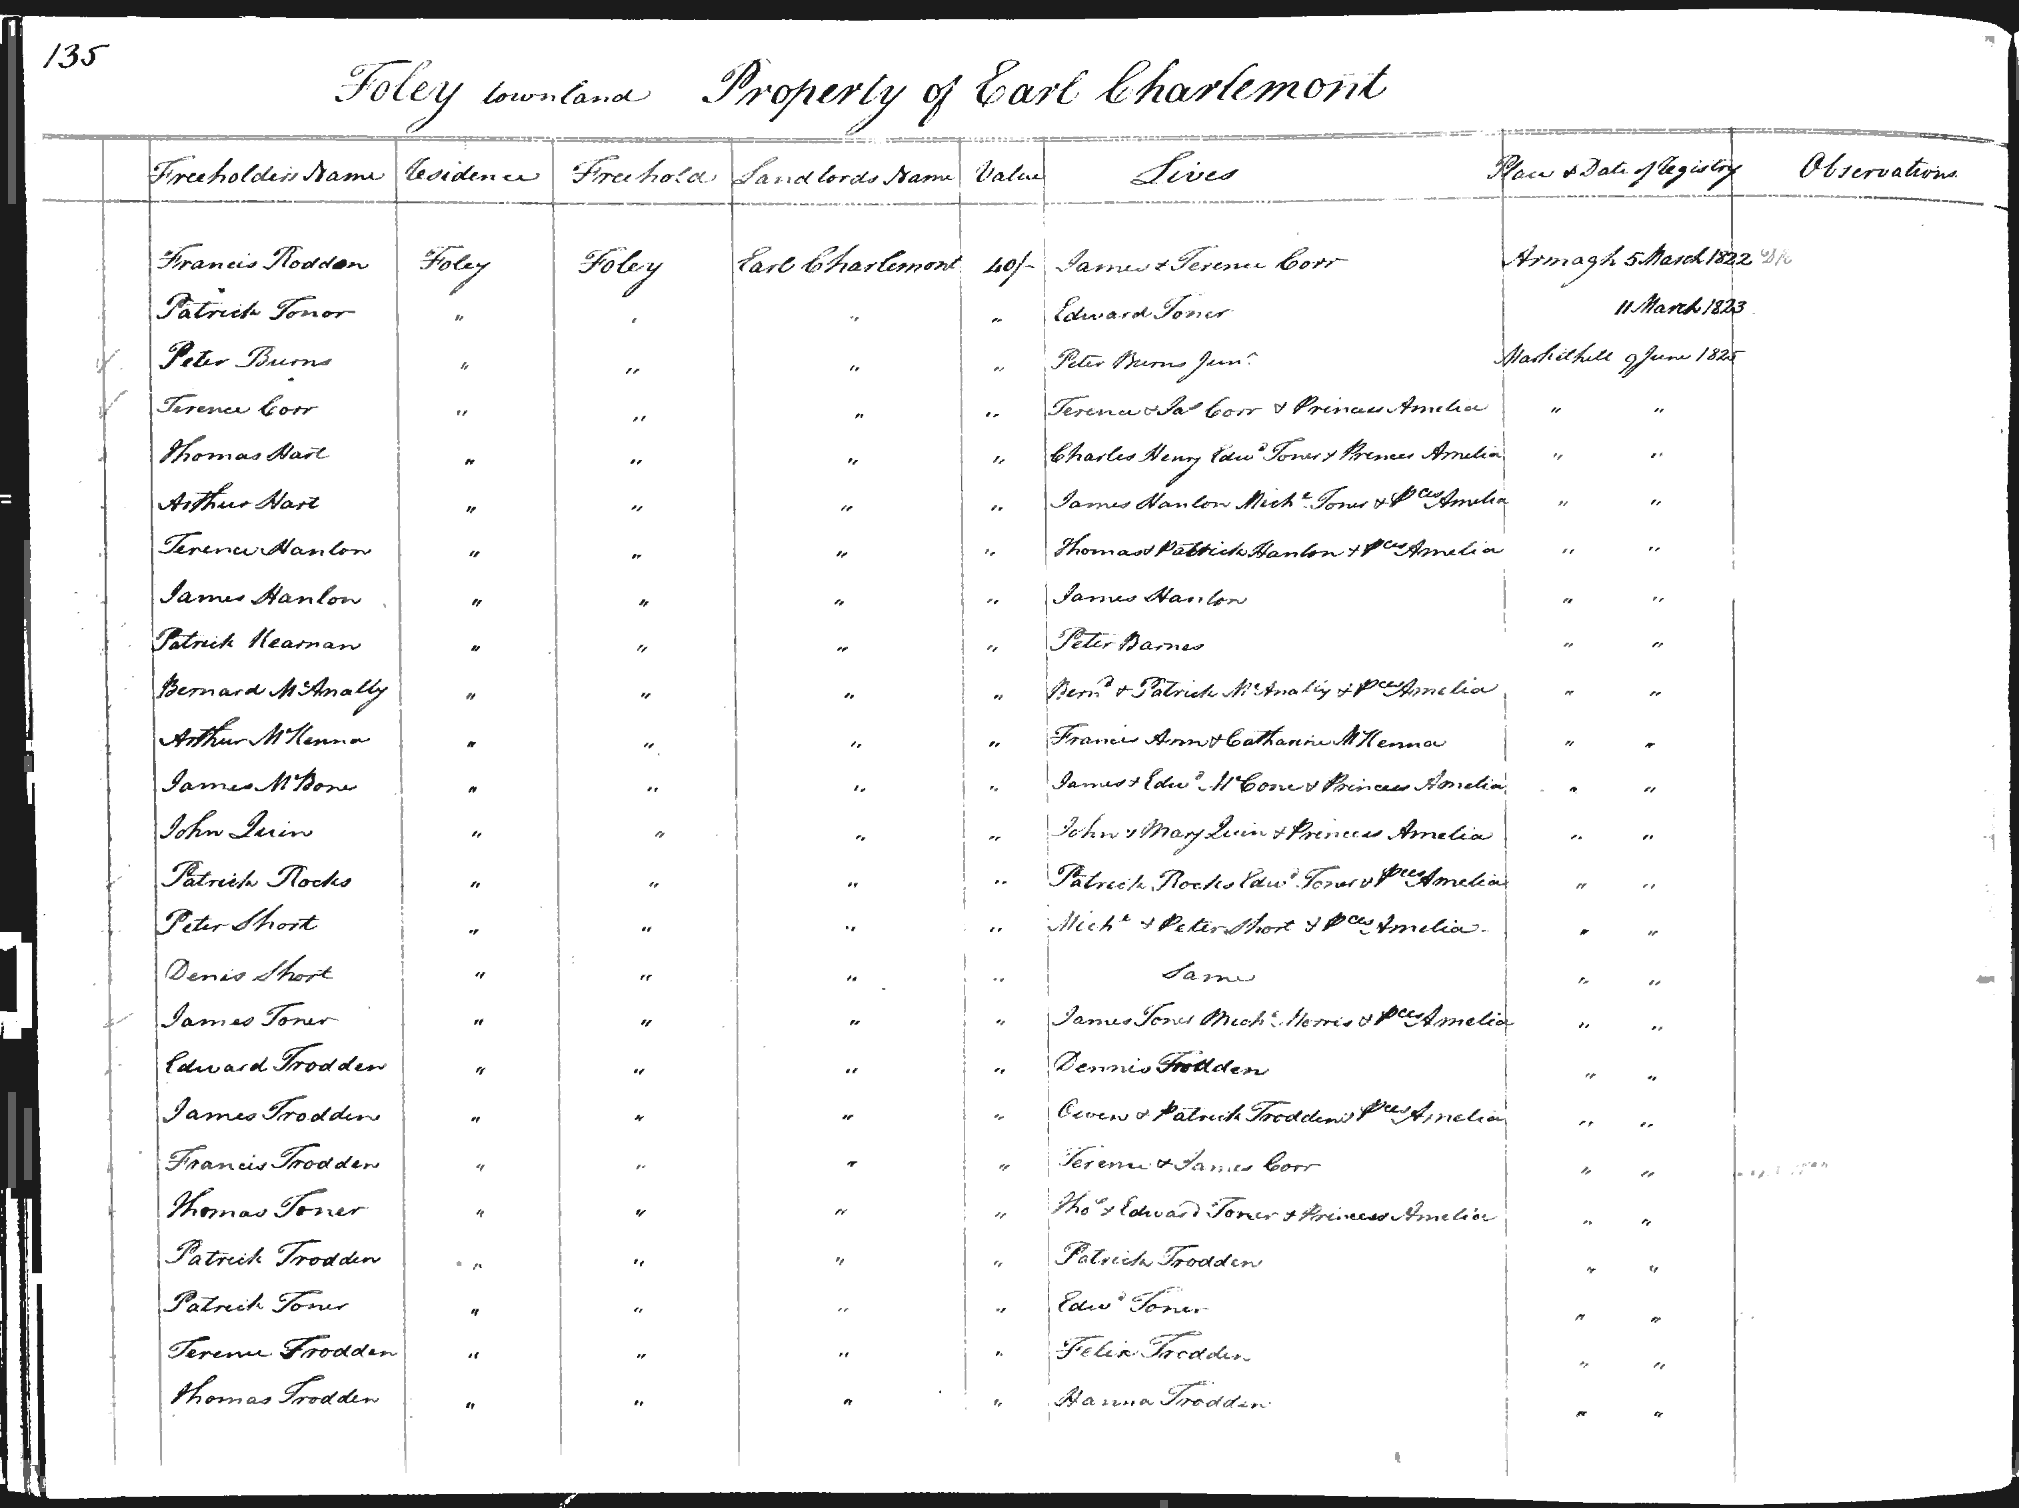 135
Foley townland Property of Earl Charlemont
Freeholders Name Residence Freehold Landlords Name Value Lives Place & Date of Registry Observations
Francis Rodden Foley Foley Earl Charlemont 40/- James & Terence Corr Armagh 5 March 1822
Patrick Tonor " " " " Edward Toner 11 March 1823
Peter Burns " " " " Peter Burns Junr. Markethill 9 June 1825
Terence Corr " " " " Terence & Jas Corr & Princess Amelia " "
Thomas Hart " " " " Charles Henry Edwd Toner & Princes Amelia " "
Arthur Hart " " " " James Hanlon Michl. Toner & Pces Amelia " "
Terence Hanlon " " " " Thomas & Patrick Hanlon & Pces Amelia " "
James Hanlon " " " " James Hanlon " "
Patrick Kearnan " " " " Peter Barnes " "
Bernard McAnally " " " " Bernd & Patrick McAnally & Pces Amelia " "
Arthur McKenna " " " " Francis Ann & Catharine McKenna " "
James McBone " " " " James & Edwd McCone & Princess Amelia " "
John Quin " " " " John & Mary Quin & Princess Amelia " "
Patrick Rocks " " " " Patrick Rocks Edwd Toner & Pces Amelia " "
Peter Short " " " " Michl & Peter Short & Pces Amelia " "
Denis Short " " " " Same " "
James Toner " " " " James Toner Michl. Morris & Pces Amelia " "
Edward Trodden " " " " Dennis Trodden " "
James Trodden " " " " Owen & Patrick Trodden & Pces Amelia " "
Francis Trodden " " " " Terence & James Corr " "
Thomas Toner " " " " Thos & Edward Toner & Princess Amelia " "
Patrick Trodden " " " " Patrick Trodden " "
Patrick Toner " " " " Edwd Toner " "
Terence Trodden " " " " Felix Trodden " "
Thomas Trodden " " " " Hanna Trodden " "